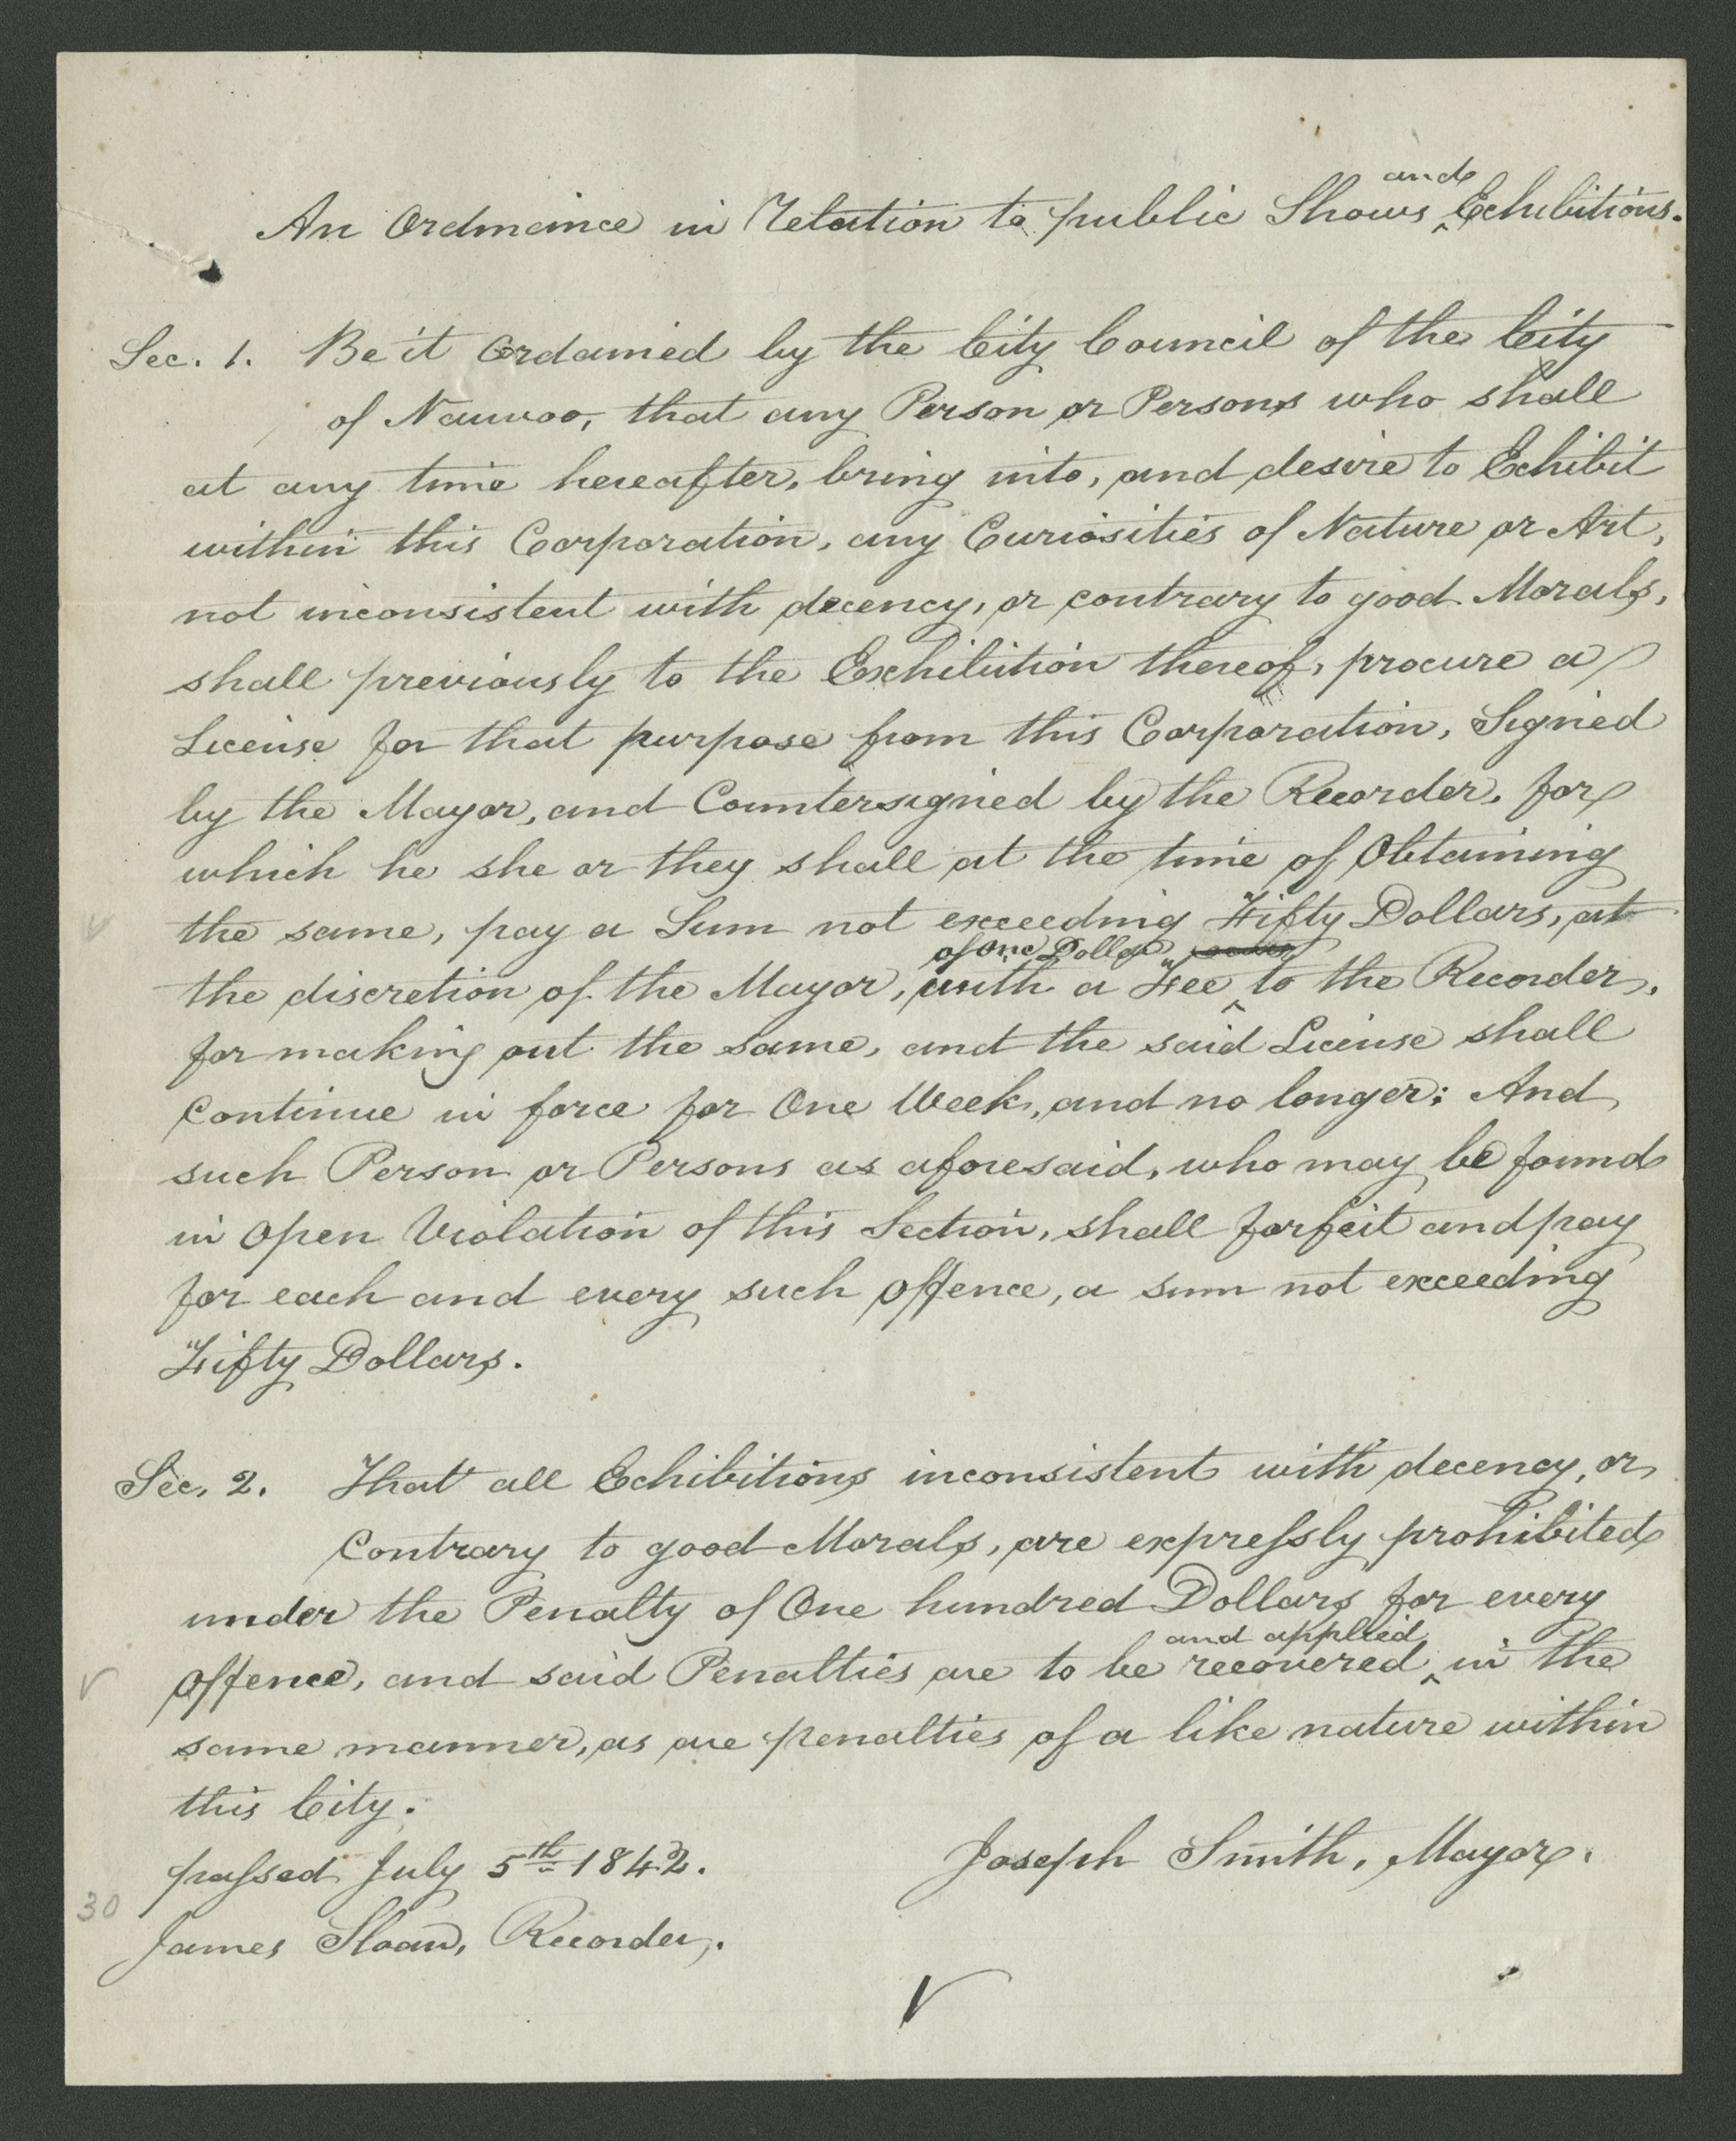 and
An Ordinance in Relation to public Shows ^ Exhibitions.
Sec. 1. Be it Ordained by the City Council of the City
of Nauvoo, that any Person or Persons who shall
at any time hereafter, bring into, and desire to Exhibit
within this Corporation, any Curiosities of Nature or Art,
not inconsistent with decency, or contrary to good Morals,
shall previously to the Exhibition thereof, procure a
License for that purpose from this Corporation, Signed
by the Mayor, and Countersigned by the Recorder, for
which he she or they shall at the time of Obtaining
the same, pay a Sum not exceeding Fifty Dollars, at
of One Dollar
the discretion of the Mayor, with a Fee ^ to the Recorder,
for making out the same, and the said License shall
Continue in force for One Week, and no longer; And
such Person or Persons as aforesaid, who may be found
in Open Violation of this Section, shall forfeit and pay
for each and every such Offence, a sum not exceeding
Fifty Dollars.
Sec. 2. That all Exhibitions inconsistent with decency, or
Contrary to good Morals, are expressly prohibited
under the Penalty of One hundred Dollars for every
and applied
Offence, and said Penalties are to be recovered ^ in the
same manner, as are penalties of a like nature within
this City.
passed July 5th 1842. Joseph Smith, Mayor.
30
James Sloan, Recorder.